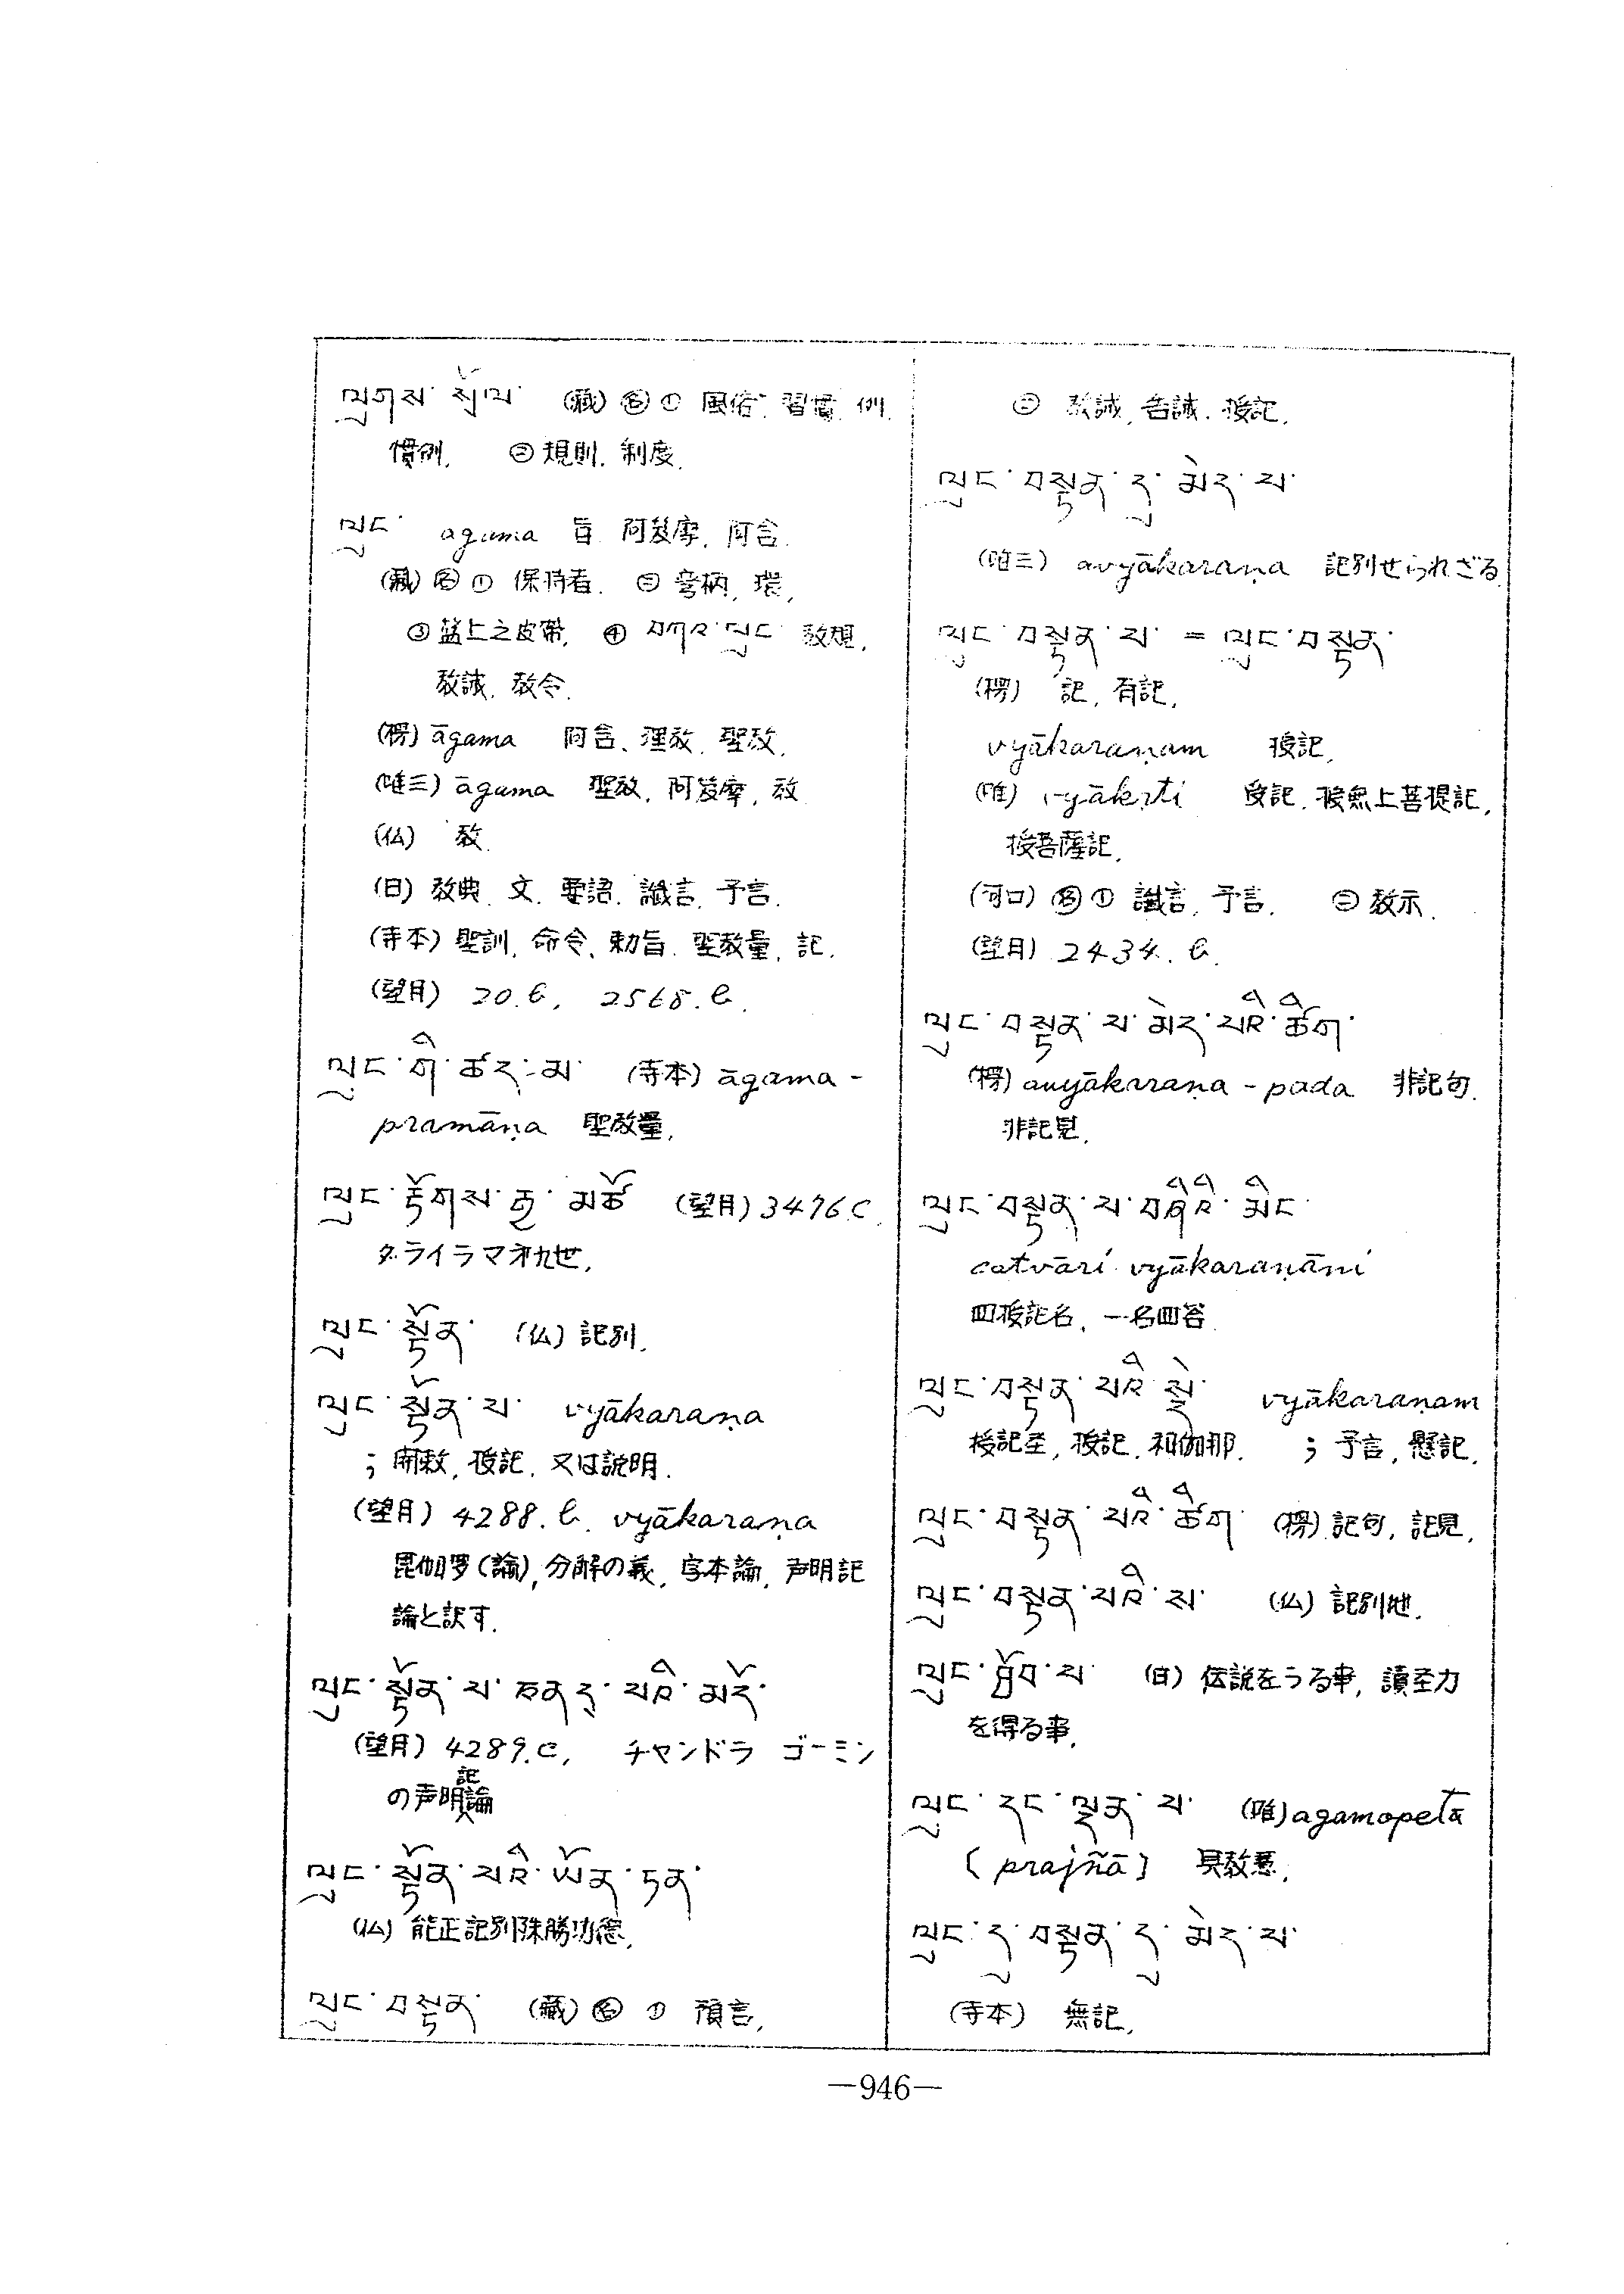 ལུགས་སྲོལ་ (藏) 名 ① 風俗. 習慣. 例.
慣例. ② 規則. 制度.
ལུང་ agama 旨. 阿笈摩. 阿含.
(藏) 名 ① 保持者. ② 壺柄, 環,
③ 籃上之皮帶, ④ བཀའ་ལུང་ 教規,
教誡. 教令.
(楞) āgama 阿含、理教. 聖教.
(唯三) āgama 聖教, 阿笈摩, 教
(仏) 教.
(日) 教典. 文. 要語. 讖言. 予言.
(寺本) 聖訓. 命令、勅旨. 聖教量, 記.
(望月) 20.b, 2568.b.
ལུང་གི་ཚད་མ་ (寺本) āgama-
pramāṇa 聖教量,
ལུང་རྟོགས་རྒྱ་མཚོ (望月) 3496.c.
ダライラマ才九世.
ལུང་སྟོན་ (仏) 記別.
ལུང་སྟོན་པ་ vyākaraṇa
; 開敷, 授記. 又は説明.
(望月) 4288.b. vyākaraṇa
毘伽羅(論), 分解の義, 字本論, 声明記
論と訳す.
ལུང་སྟོན་པ་ཙནད྄་པའི་མདོ་
(望月) 4289.c, チャンドラ ゴーミン
の声明記論
ལུང་སྟོན་པའི་ཡོན་ཏན་
(仏) 能正記別殊勝功德,
ལུང་བསྟན་ (藏) 名 ① 預言,
② 教誡, 告誡. 授記.
ལུང་བསྟན་དུ་མེད་པ་
(唯三) avyākaraṇa 記別せられざる
ལུང་བསྟན་པ་ = ལུང་བསྟན་
(楞) 記, 有記,
vyākaraṇam 授記,
(唯) vyākṛti 受記. 授無上菩提記,
授菩薩記,
(河口) 名 ① 讖言, 予言. ② 教示.
(望月) 2434.b.
ལུང་བསྟན་པ་མེད་པའི་ཚིག་
(楞) avyākaraṇa-pada 非記句.
非記見,
ལུང་བསྟན་པ་བཞིའི་མིང་
catvāri vyākaraṇāni
四授記名, 一名四答.
ལུང་བསྟན་པའི་སྡེ་ vyākaraṇam
授記圣, 授記, 和伽那. ; 予言, 懸記.
ལུང་བསྟན་པའི་ཚིག་ (楞) 記句, 記見,
ལུང་བསྟན་པའི་ས་ (仏) 記別地.
ལུང་ཐོབ་པ་ (日) 伝説をうる事, 讀圣力
を得る事,
ལུང་དང་ལྡན་པ་ (唯) agamopetā
[prajñā] 具教慧,
ལུང་དུ་བསྟན་དུ་མེད་པ་
(寺本) 無記,
—946—